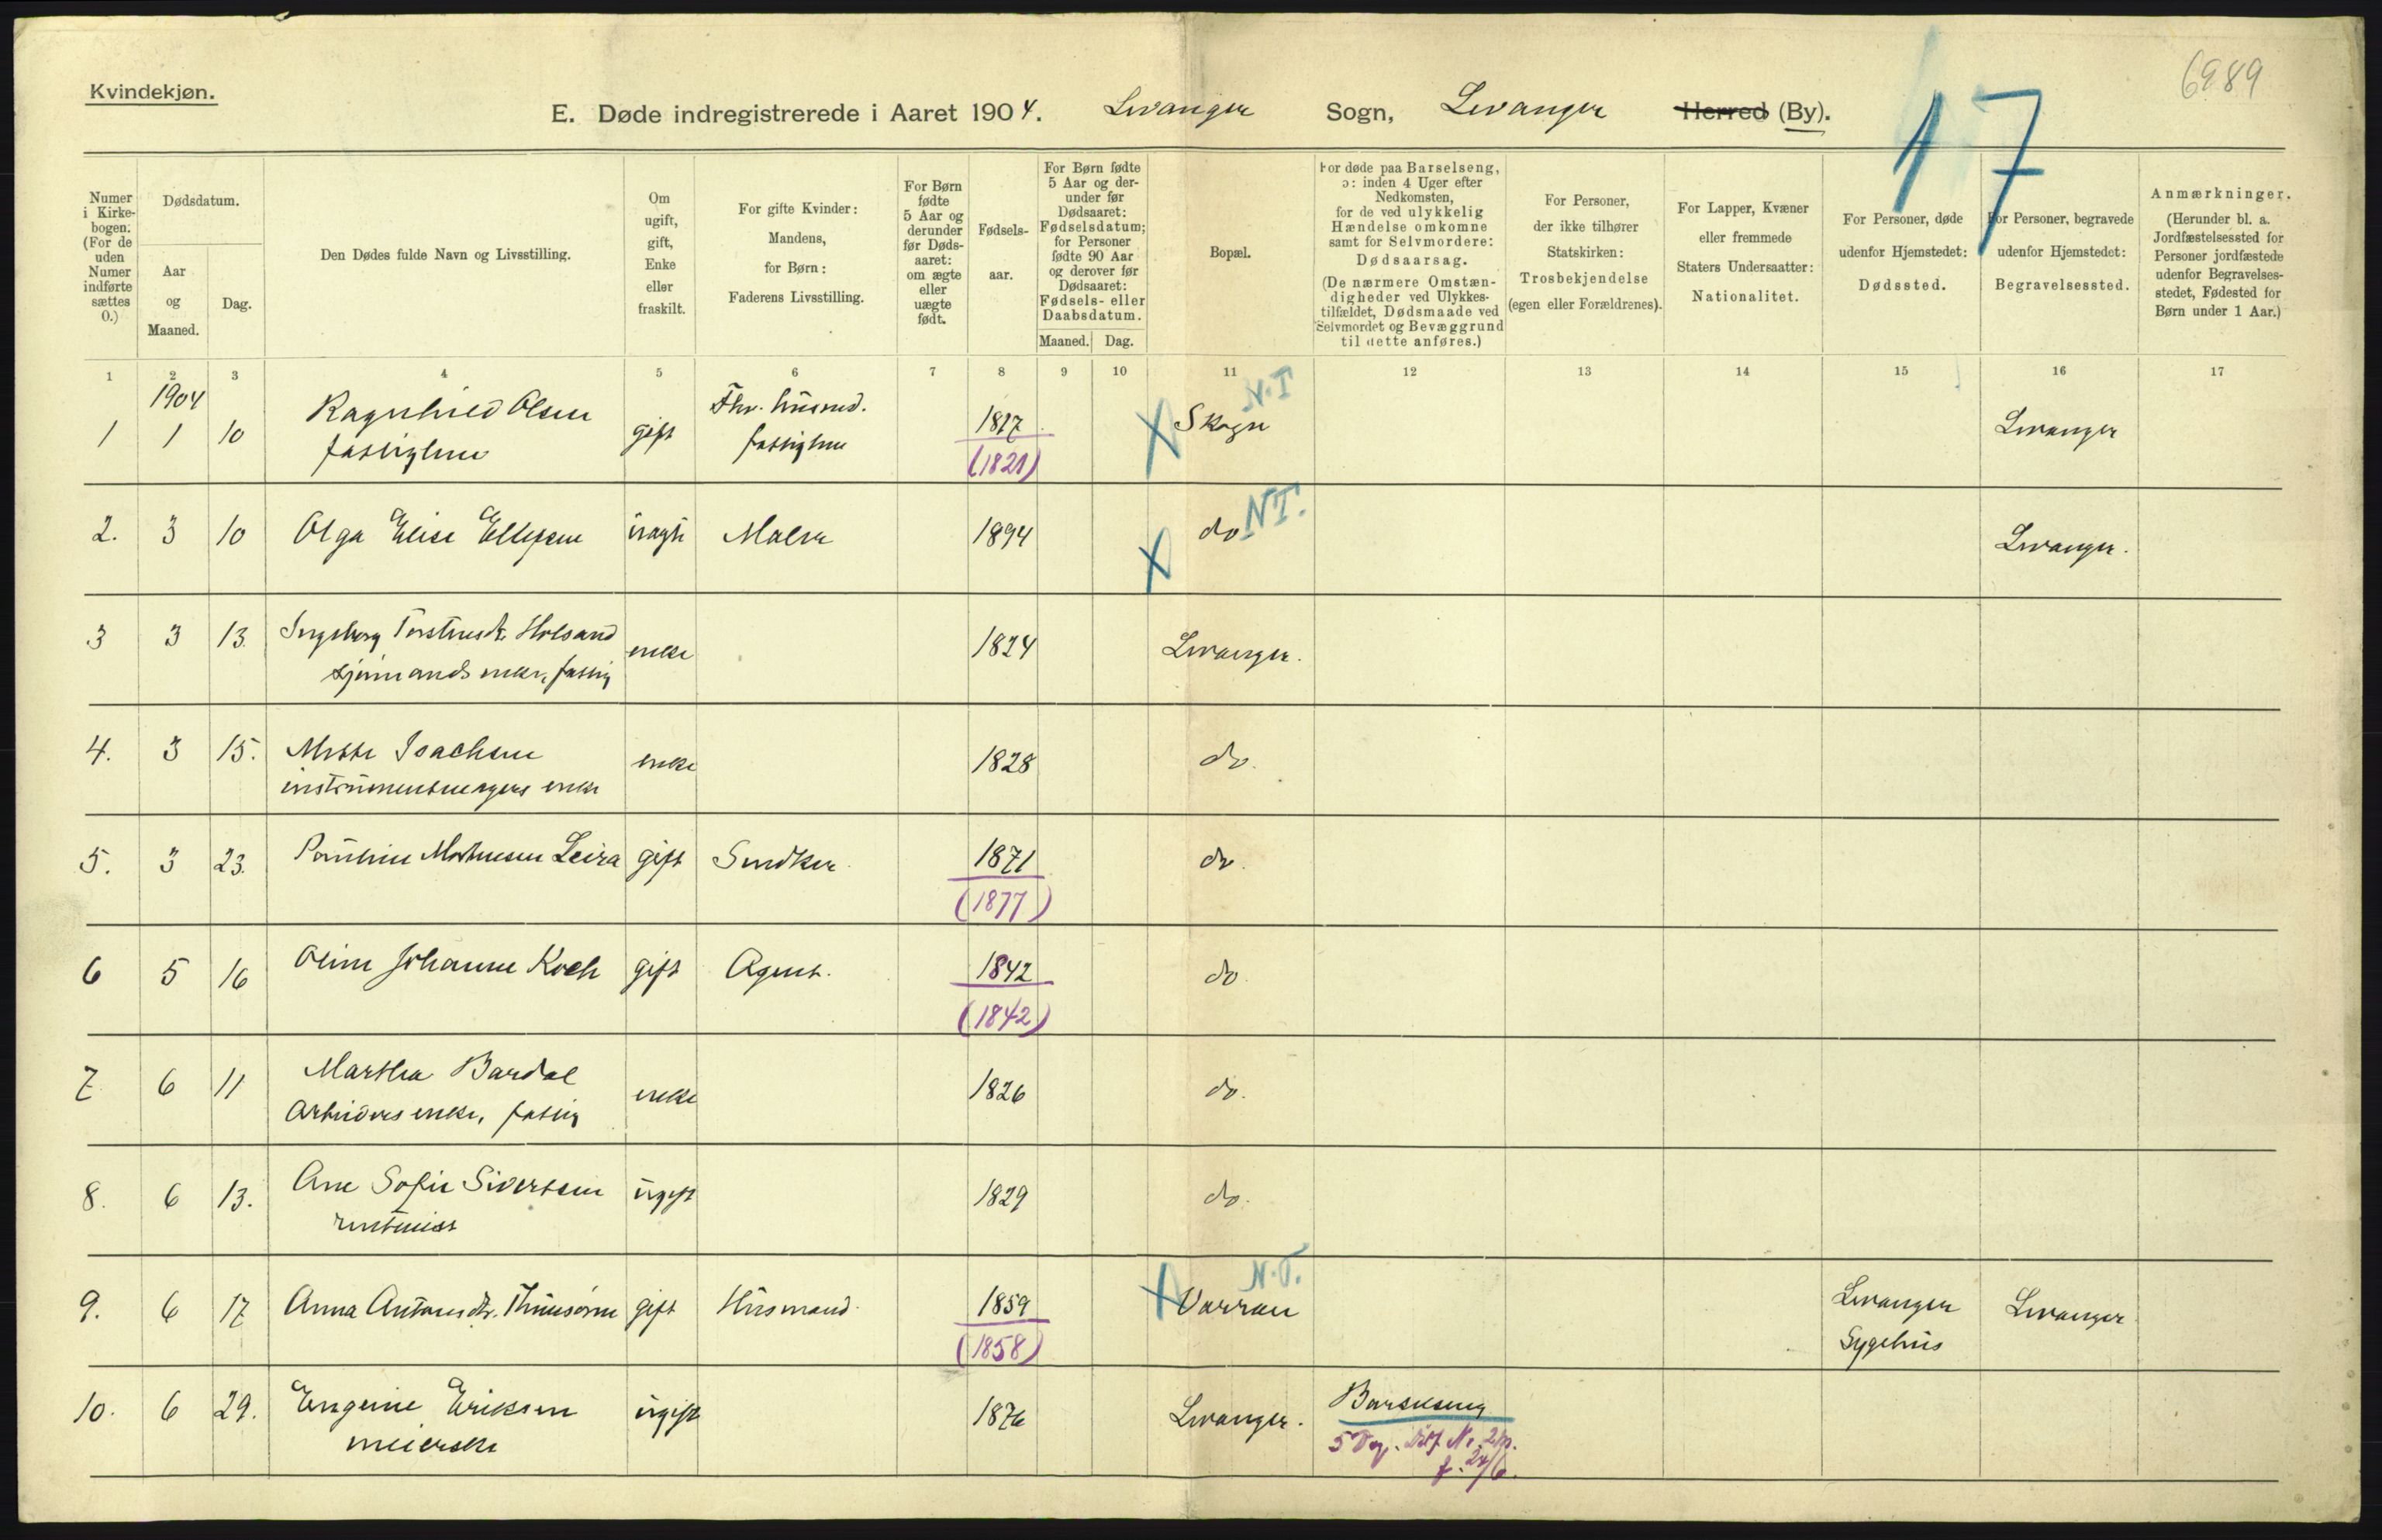 6989
Kvindekjøn.
E. Døde indregistrerede i Aaret 1904. Levanger Sogn, Levanger Herred (By).
17
Numer i Kirke-bogen. (For de uden Numer indførte sættes 0.)
Dødsdatum.
Aar og Maaned.
Dag.
Den Dødes fulde Navn og Livsstilling.
Om ugift, gift, Enke eller fraskilt.
For gifte Kvinder: Mandens, for Børn: Faderens Livsstilling.
For Børn fødte 5 Aar og derunder før Døds-aaret: om ægte eller uægte født.
Fødsels-aar.
For Børn fødte 5 Aar og der-under før Dødsaaret: Fødselsdatum; for Personer fødte 90 Aar og derover før Dødsaaret: Fødsels- eller Daabsdatum.
Maaned.
Dag.
Bopæl.
For døde paa Barselseng, ɔ: inden 4 Uger efter Nedkomsten, for de ved ulykkelig Hændelse omkomne samt for Selvmordere: Dødsaarsag. (De nærmere Omstæn-digheder ved Ulykkes-tilfældet, Dødsmaade ved Selvmordet og Bevæggrund til dette anføres.)
For Personer, der ikke tilhører Statskirken: Trosbekjendelse (egen eller Forældrenes).
For Lapper, Kvæner eller fremmede Staters Undersaatter: Nationalitet.
For Personer, døde udenfor Hjemstedet: Dødssted.
For Personer, begravede udenfor Hjemstedet: Begravelsessted.
Anmærkninger. (Herunder bl. a. Jordfæstelsessted for Personer jordfæstede udenfor Begravelses-stedet, Fødested for Børn under 1 Aar.)
1 2 3 4 5 6 7 8 9 10 11 12 13 14 15 16 17
1904
1 1 10 Ragnhild Olsen fattiglem gift Fhv. husmd. fattiglem 1817 (1821) Skogn N.T Levanger
2. 3 10 Olga Elise Ellefsen Maler 1894 do NT. Levanger.
3 3 13. Ingeborg Torstensdt. Holsand enke, fattig enke 1824 Levanger.
4. 3 15. Mette Isachsen instrumentmagers enke enke 1828 do.
5. 3 23. Pauline Mortensen Leira gift Snedker 1871 (1877) do.
6 5 16 Oline Johanne Koch gift Agent. 1842 (1842) do.
7 6 11 Martha Bardal Arbeiders enke, fattig enke 1826 do.
8. 6 13. Ane Sofie Sivertsen rentenist ugift 1829 do.
9. 6 17 Anna Antonsdtr. gift Husmand. 1859 (1858) Værran N.T. Levanger Sygehus Levanger
10. 6 29. Eugenie Eriksen meierske ugift 1876 Levanger. Barselseng
5 Dg. Nr. 2 f. 24/6.